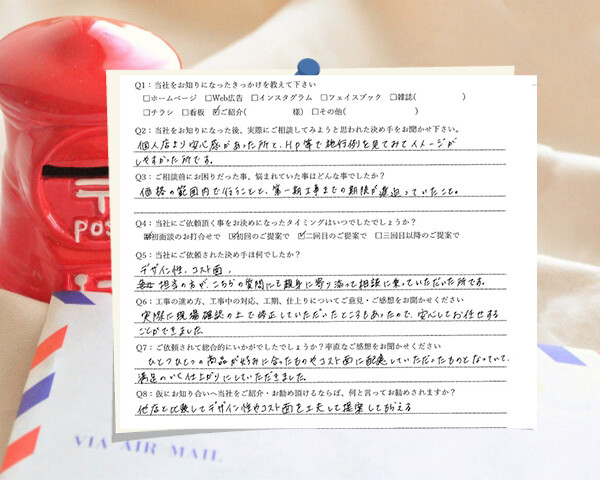 Q1：当社をお知りになったきっかけを教えて下さい
□ホームページ □Web広告 □インスタグラム □フェイスブック □雑誌( )
□チラシ □看板 ☑ご紹介( 様) □その他( )
Q2：当社をお知りになった後、実際にご相談してみようと思われた決め手をお聞かせ下さい。
個人店より安心感があった所と、HP等で施行例を見てみてイメージが
しやすかった所です。
Q3：ご相談前にお困りだった事、悩まれていた事はどんな事でしたか？
価格の範囲内で行うことと、第一期工事までの期限が迫っていたこと。
Q4：当社にご依頼頂く事をお決めになったタイミングはいつでしたでしょうか？
初面談のお打合せで ☑初回のご提案で ☑二回目のご提案で □三回目以降のご提案で
Q5：当社にご依頼された決め手は何でしたか？
デザイン性、コスト面、
担当の方が、こちらの質問にも親身に寄り添って相談に乗っていただいた所です。
Q6：工事の進め方、工事中の対応、工期、仕上りについてご意見・ご感想をお聞かせください
実際に現場確認の上で修正していただいたところもあったので、安心してお任せする
ことができました。
Q7：ご依頼されて総合的にいかがでしたでしょうか？率直なご感想をお聞かせください
ひとつひとつの商品が好みに合ったものやコスト面に配慮していただったものとなっていて、
満足のいく仕上がりにしていただきました。
Q8：仮にお知り合いへ当社をご紹介・お勧め頂けるならば、何と言ってお勧めされますか？
他店と比較してデザイン性やコスト面を工夫して提案してもらえる
POS
VIA AIR MAIL